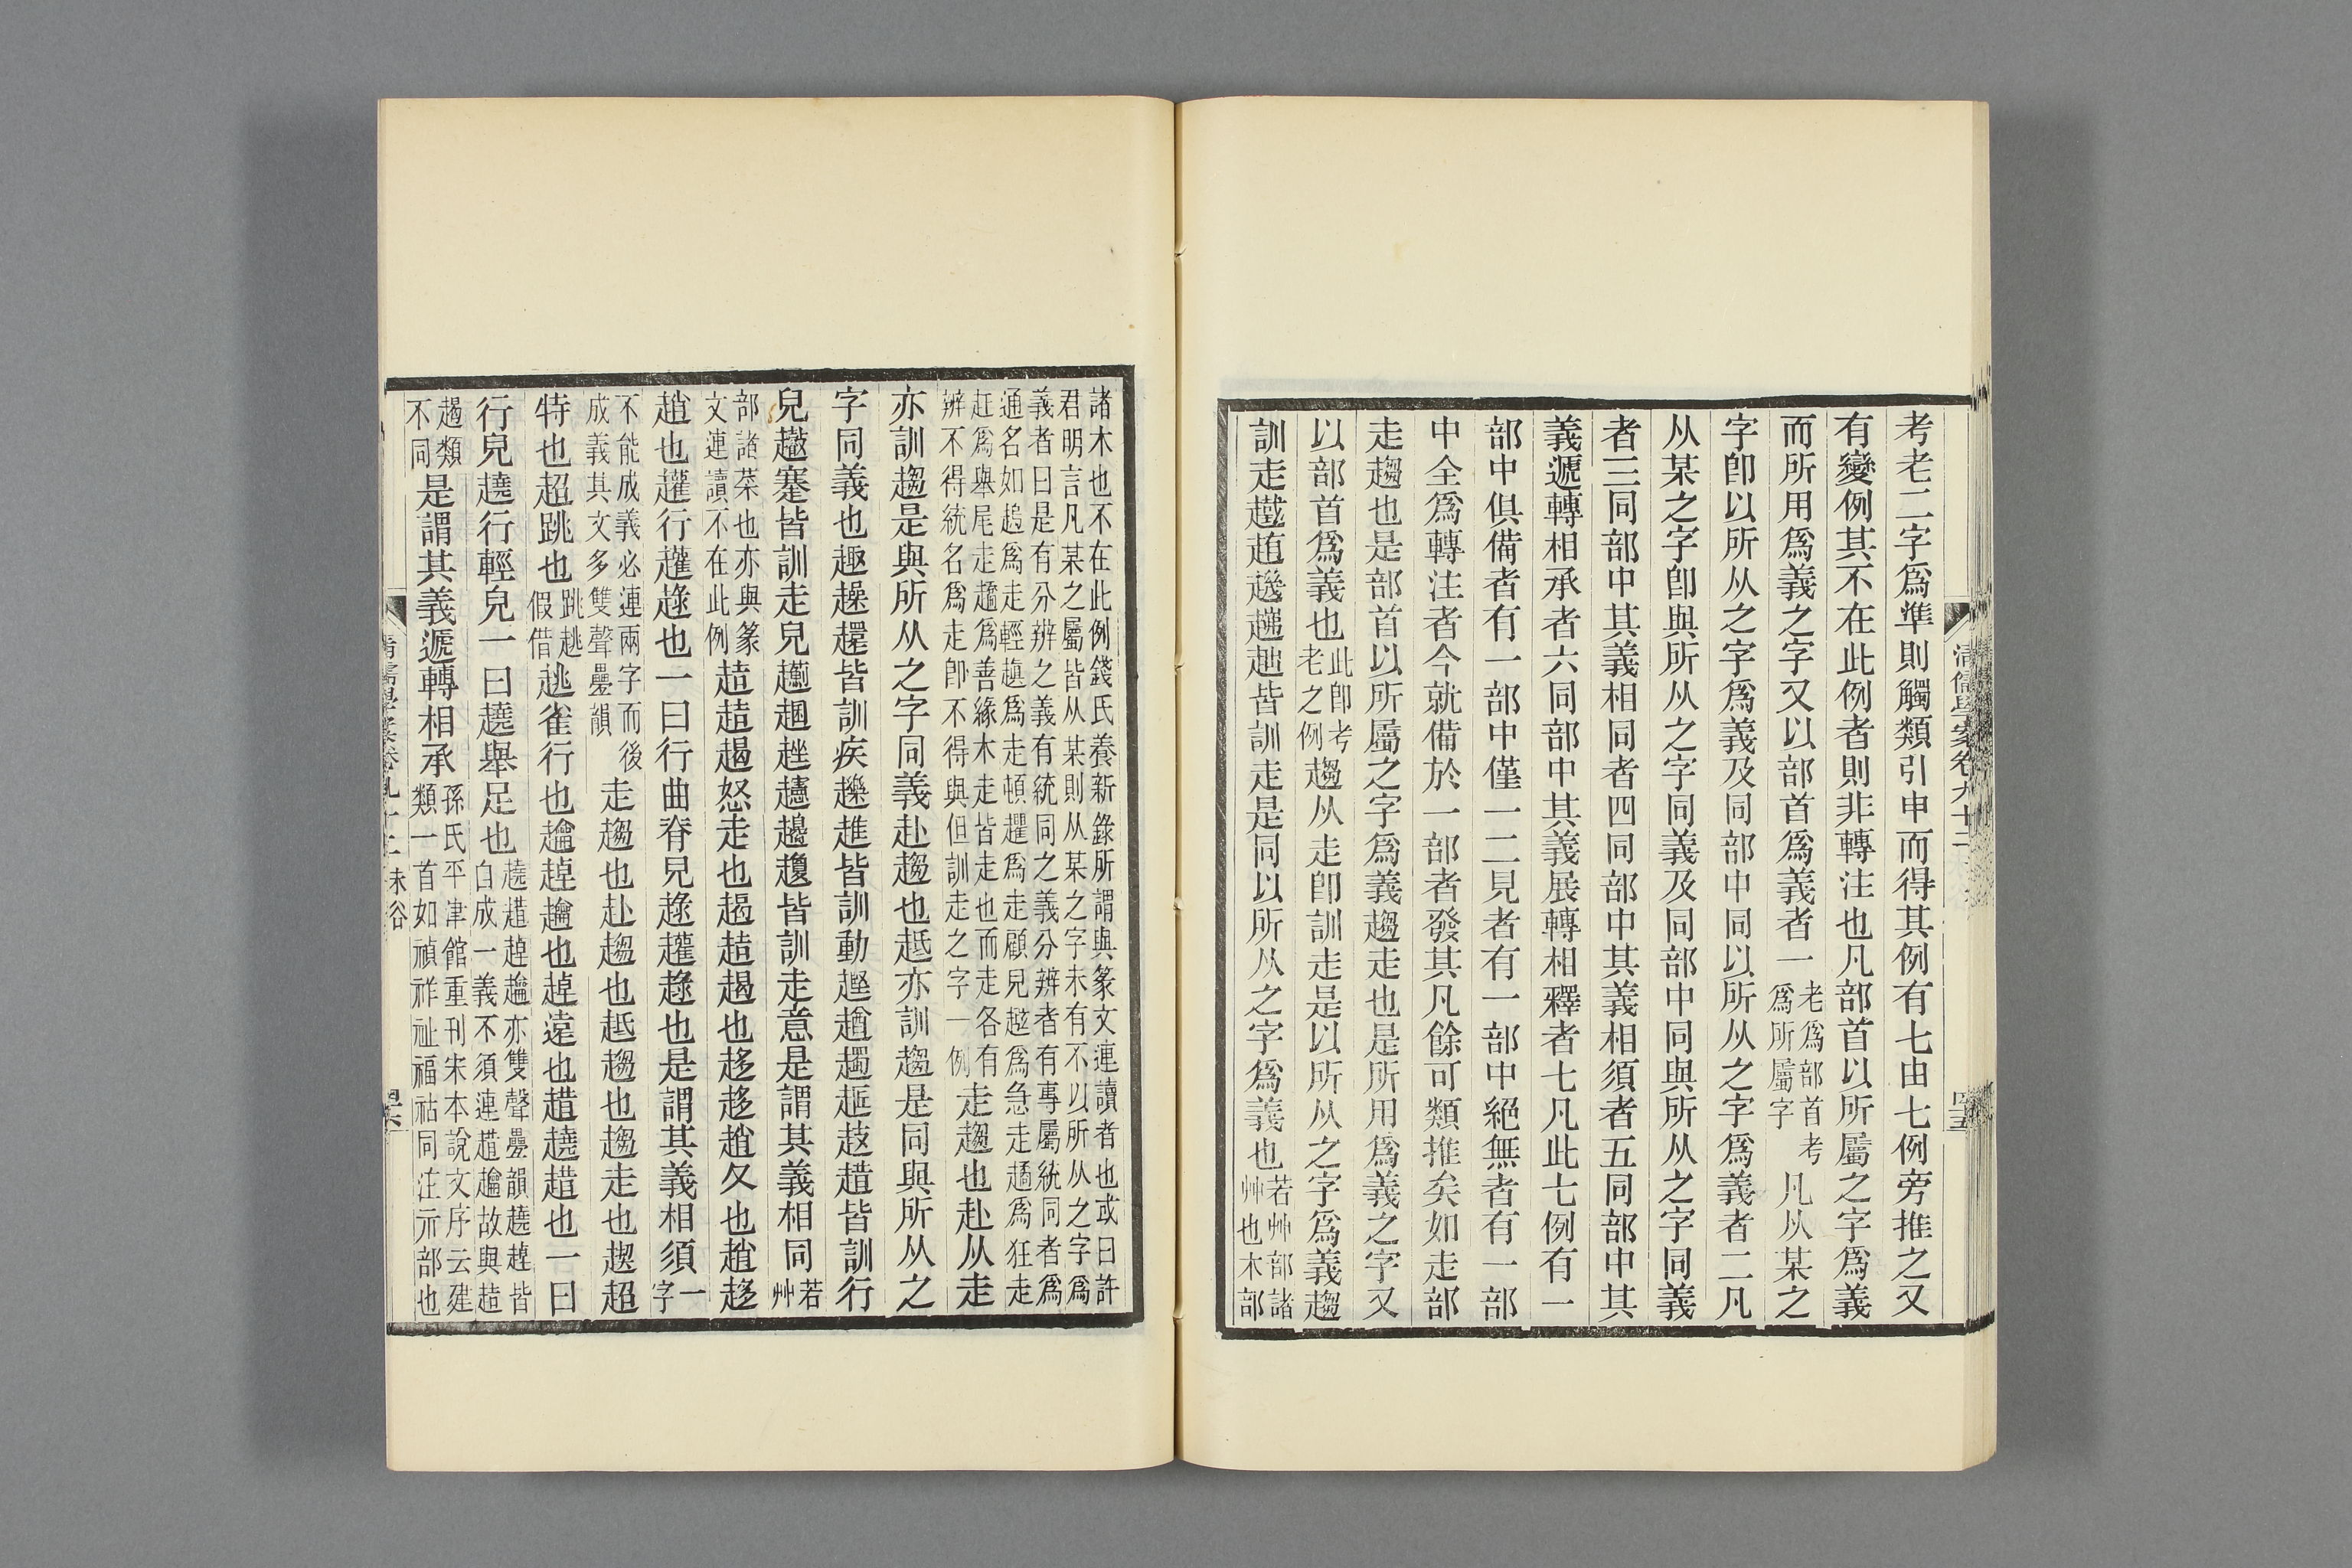 考老二字爲準則觸類引申而得其例有七由七例旁推之又
有變例其不在此例者則非轉注也凡部首以所屬之字爲義
而所用爲義之字又以部首爲義者一老爲部首考爲所屬字凡从某之
字卽以所从之字爲義及同部中同以所从之字爲義者二凡
从某之字卽與所从之字同義及同部中同與所从之字同義
者三同部中其義相同者四同部中其義相須者五同部中其
義遞轉相承者六同部中其義展轉相釋者七凡此七例有一
部中俱備者有一部中僅一二見者有一部中絕無者有一部
中全爲轉注者今就備於一部者發其凡餘可類推矣如走部
走趨也是部首以所屬之字爲義趨走也是所用爲義之字又
以部首爲義也此卽考老之例趨从走卽訓走是以所从之字爲義趨
訓走皆訓走是同以所从之字爲義也若艸部諸艸也木部
清儒學案卷九十二
諸木也不在此例錢氏養新錄所謂與篆文連讀者也或曰許
君明言凡某之屬皆从某則从某之字未有不以所从之字爲
義者曰是有分辨之義有統同之義分辨者有專屬統同者爲
通名如趫爲走輕趣爲走頓趯爲走顧見越爲急走趫爲狂走
赶爲舉尾走趫爲善緣木走皆走也而走各有
辨不得統名爲走卽不得與但訓走之字一例走趨也赴从走
亦訓趨是與所从之字同義赴趨也赿亦訓趨是同與所从之
字同義也趣趮趯皆訓疾皆訓動皆訓行
皃蹇皆訓走皃皆訓走意是謂其義相同若艸
部諸菜也亦與篆文連讀不在此例趌趌趨怒走也趨趌趨也趍趍趙久也趙趍
趙也趯行趯趢也一曰行曲脊皃趢趯趢也是謂其義相須一字
不能成義必連兩字而後成義其文多雙聲疊韻走趨也赴趨也赿趨也趨走也趨超
特也超跳也跳越假借趒雀行也趠遠也趬趞也一曰
行皃趬行輕皃一曰趬舉足也亦雙聲疊韻皆白成一義不須連故與趌
趨類不同是謂其義遞轉相承孫氏平津館重刊宋本說文序云建類一首如禎祥祉福祜同注示部也
清儒學案卷九十二 未谷